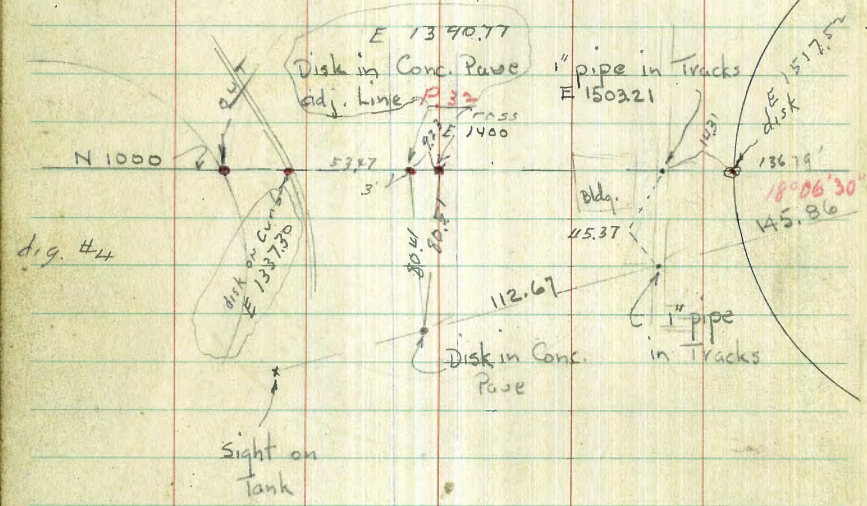 E 1390.77
Disk in Conc. Pave
adj. Line P. 32
1" pipe in Tracks
E 1503.21
E 1517.52
disk
out
cross
E 1400
9.23
14.31
N 1000
53.47
3'
136.79'
18°06'30"
145.86
Bldg.
45.37
dig. #4
disk on Curb
E 1337.30
80.41
80.51
112.67
1" pipe
in Tracks
Disk in Conc.
Pave
Sight on
Tank